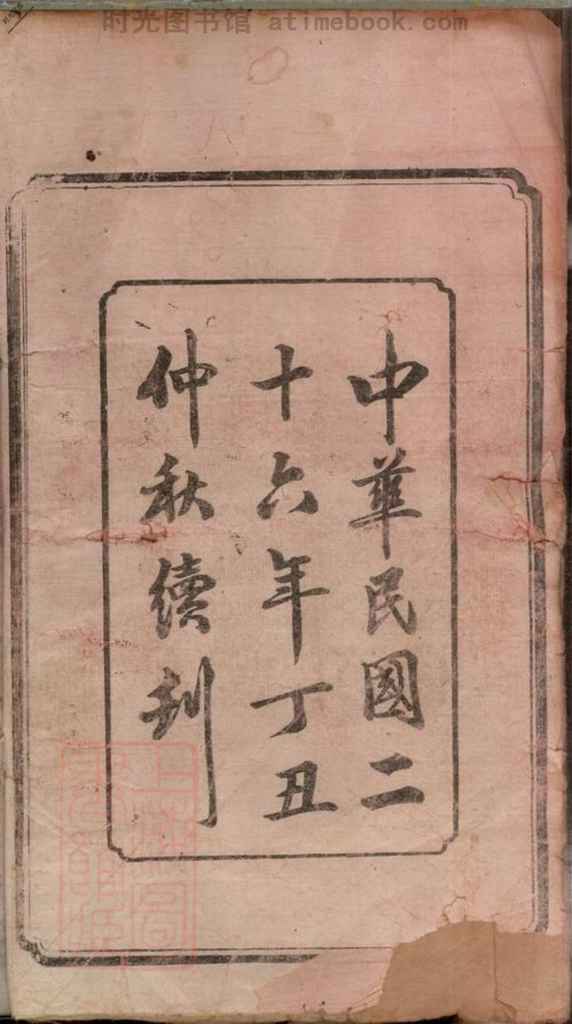 时光图书馆 atimebook.com
中華民國二
十六年丁丑
仲秋續刊